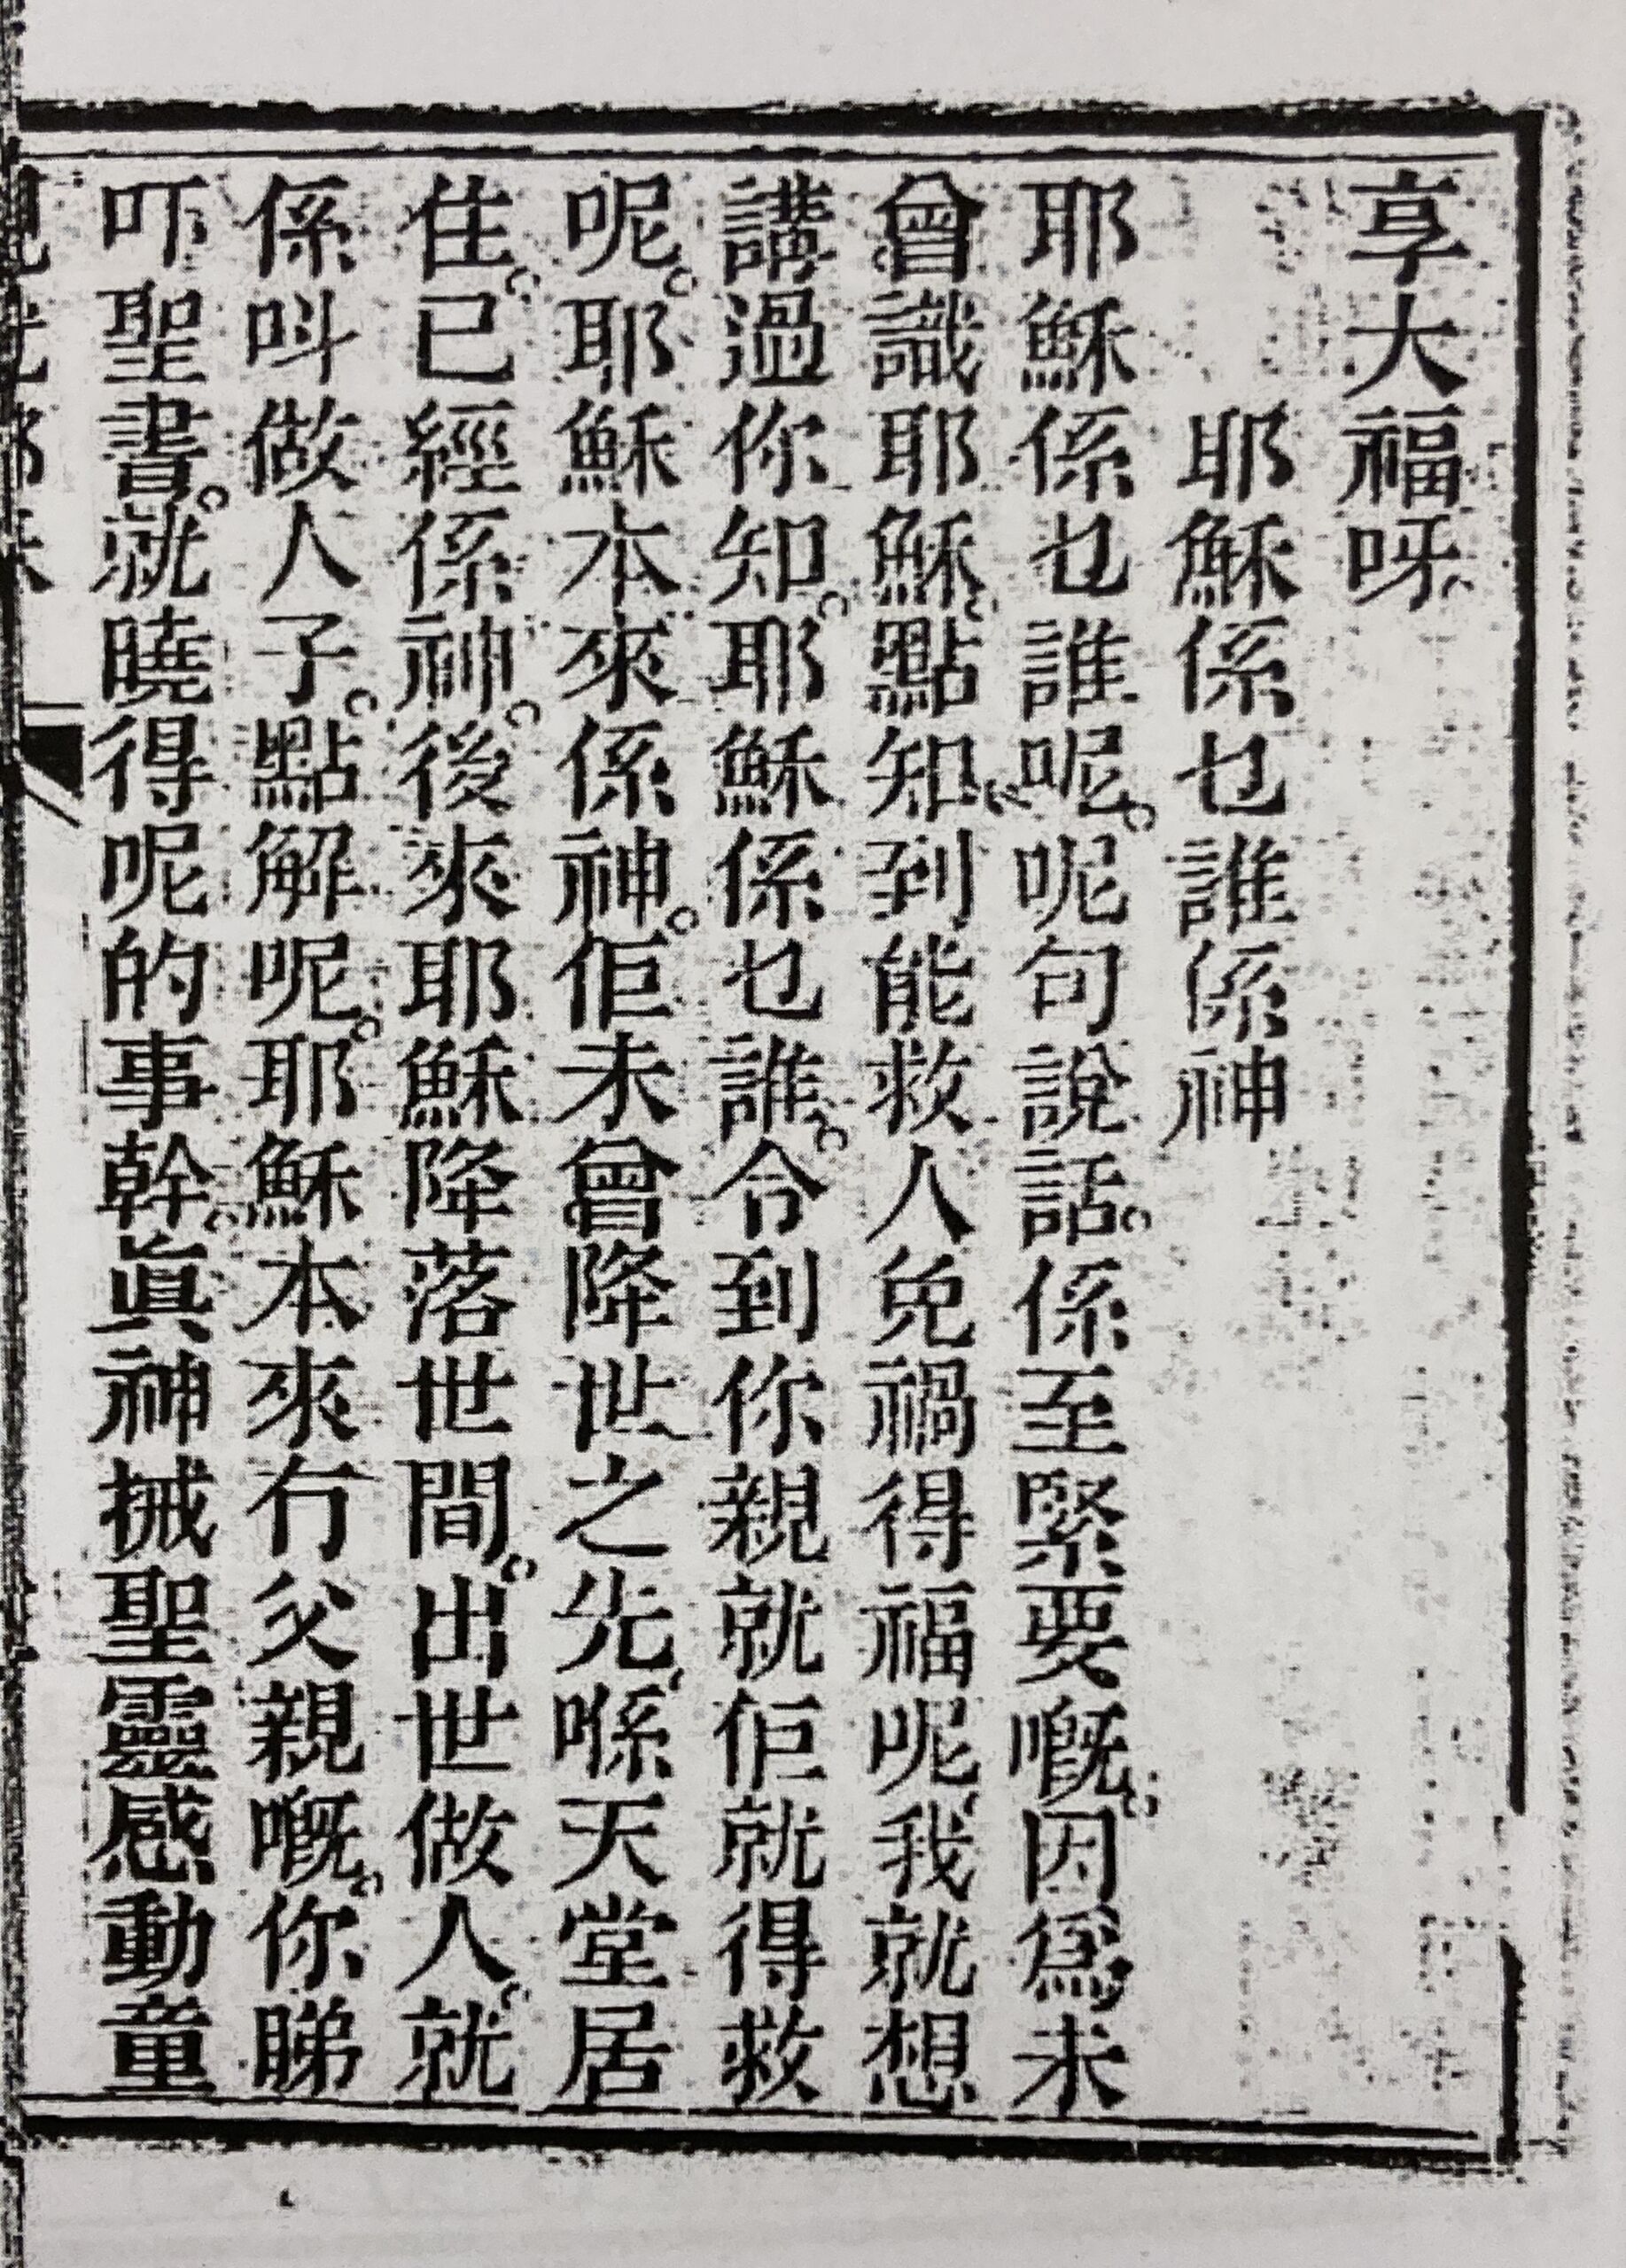 享大福呀、
耶穌係乜誰係神
耶穌係乜誰呢。呢句說話。係至緊要嘅。因爲未
曾識耶穌、點知到能救人免禍得福呢、我就想
講過你知。耶穌係乜誰。令到你親就佢就得救
呢。耶穌本來係神。佢未曾降世之先、喺天堂居
住。已經係神。後來耶穌降落世間。出世做人。就
係呌做人子。點解呢。耶穌本來冇父親嘅。你睇
吓聖書。就曉得呢的事幹。眞神搣聖靈感動童